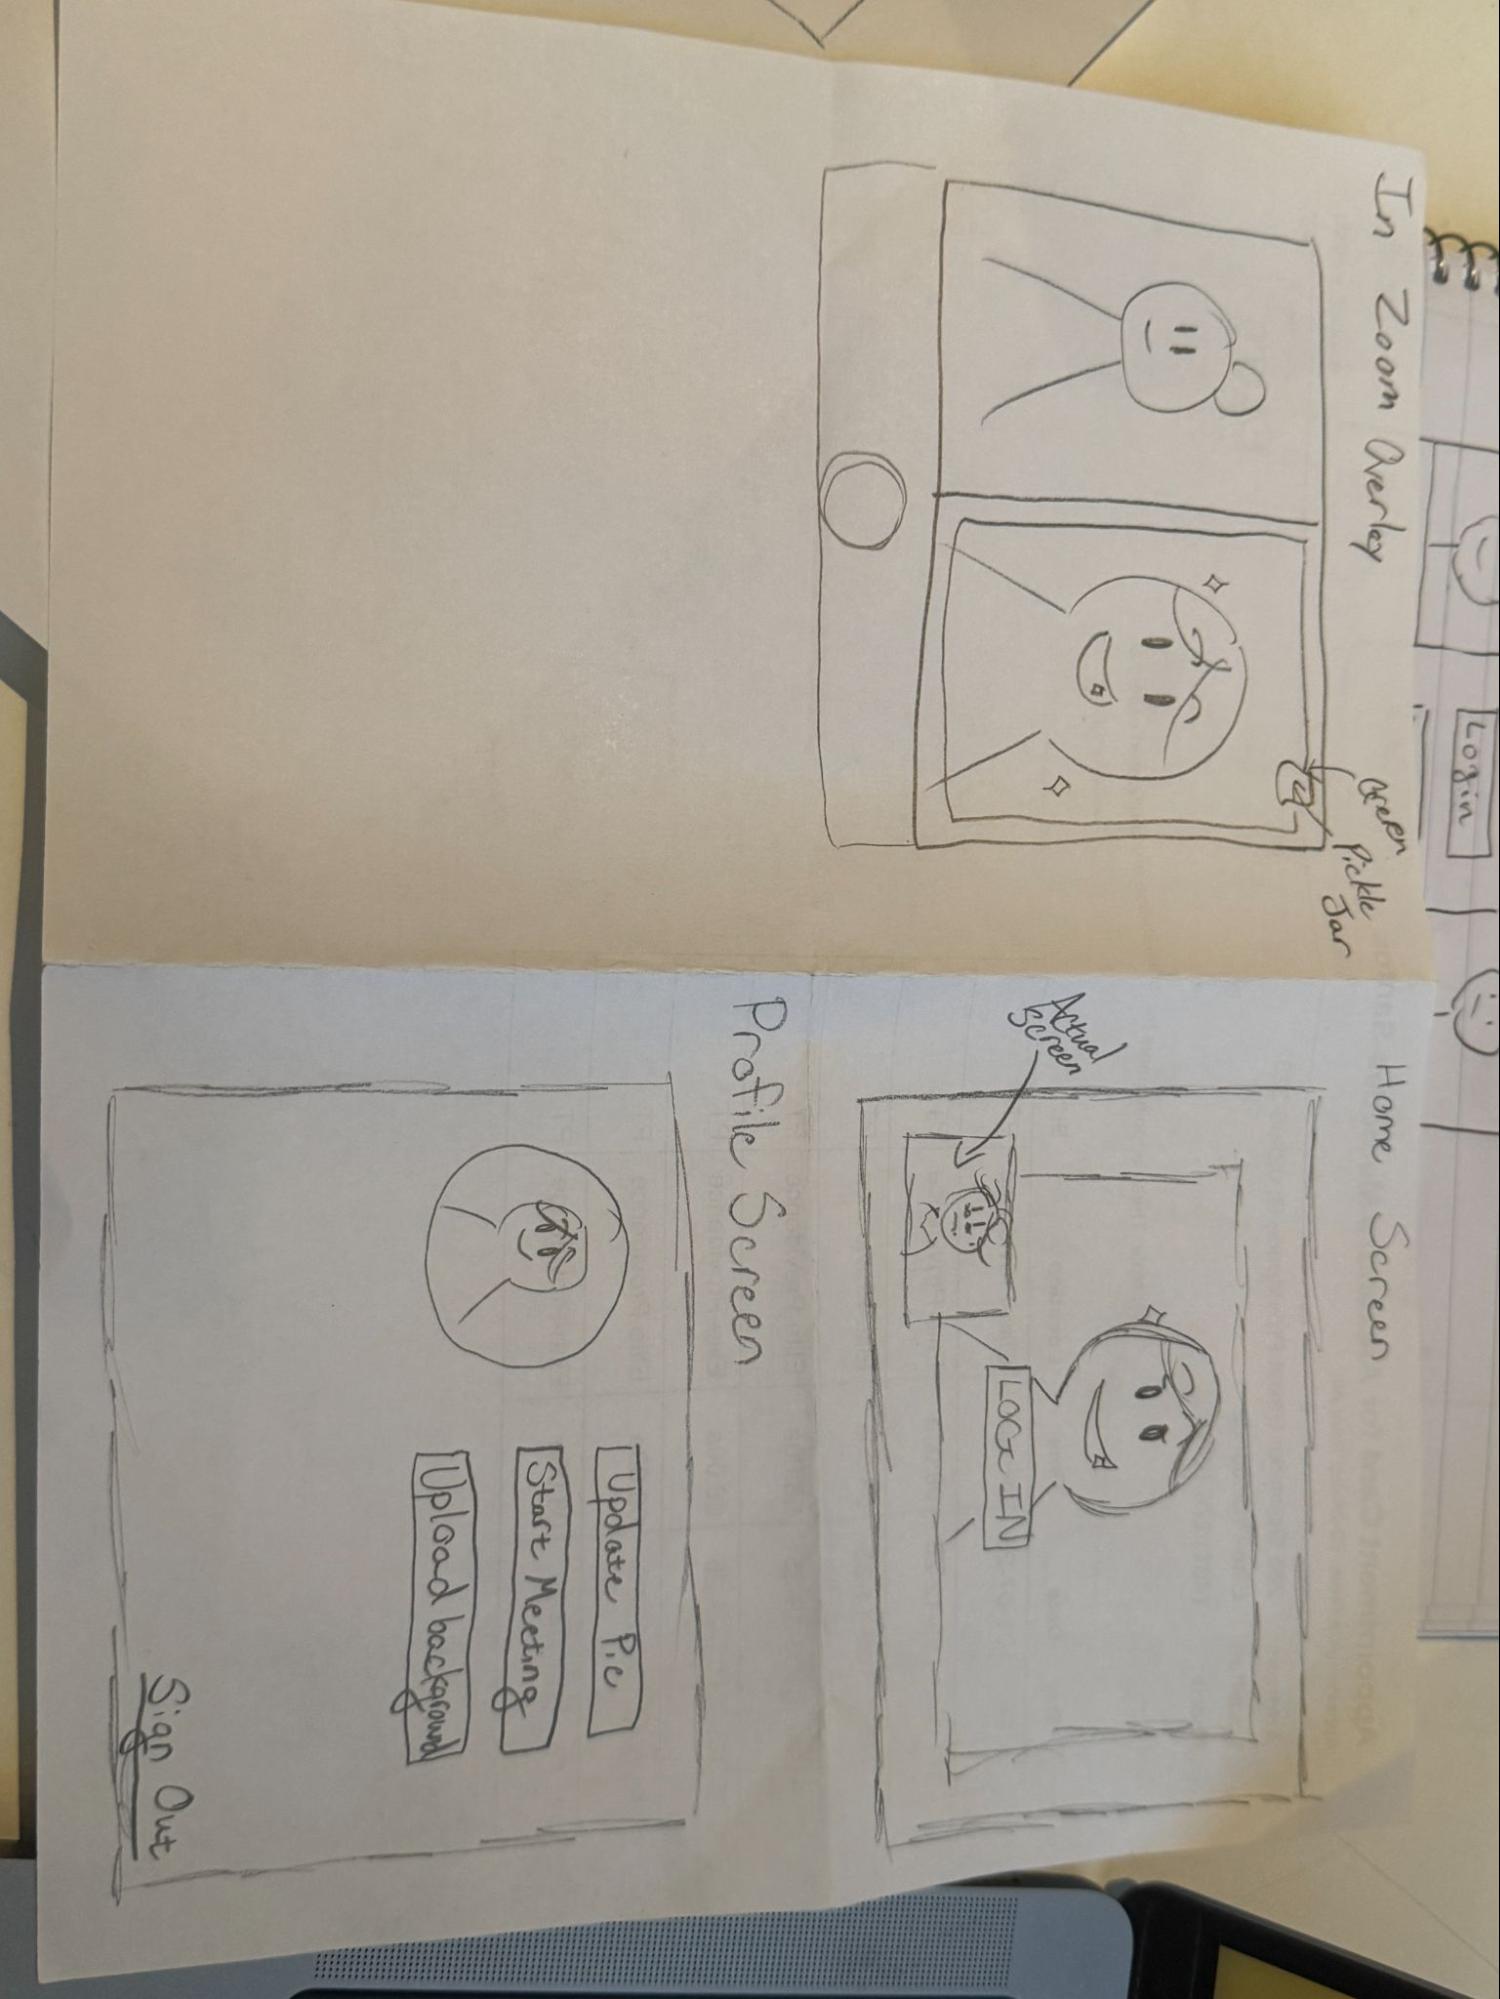 In Zoom Overlay
Green
Pickle
Jar
Home Screen
Actual
Screen
LOG IN
Profile Screen
Update Pic
Start Meeting
Upload background
Sign Out
Login